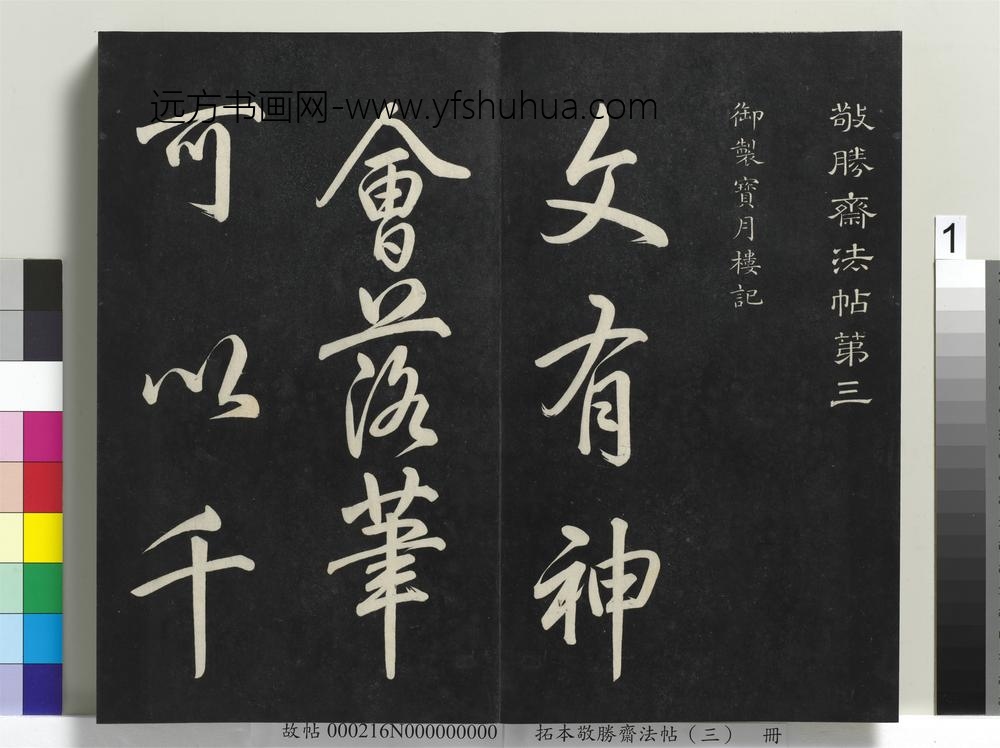 远方书画网-www.yfshuhua.com
敬勝齋法帖第三
御製寶月樓記
文有神
會落筆
可以千
1
故帖 000216N000000000
拓本敬勝齋法帖（三） 冊